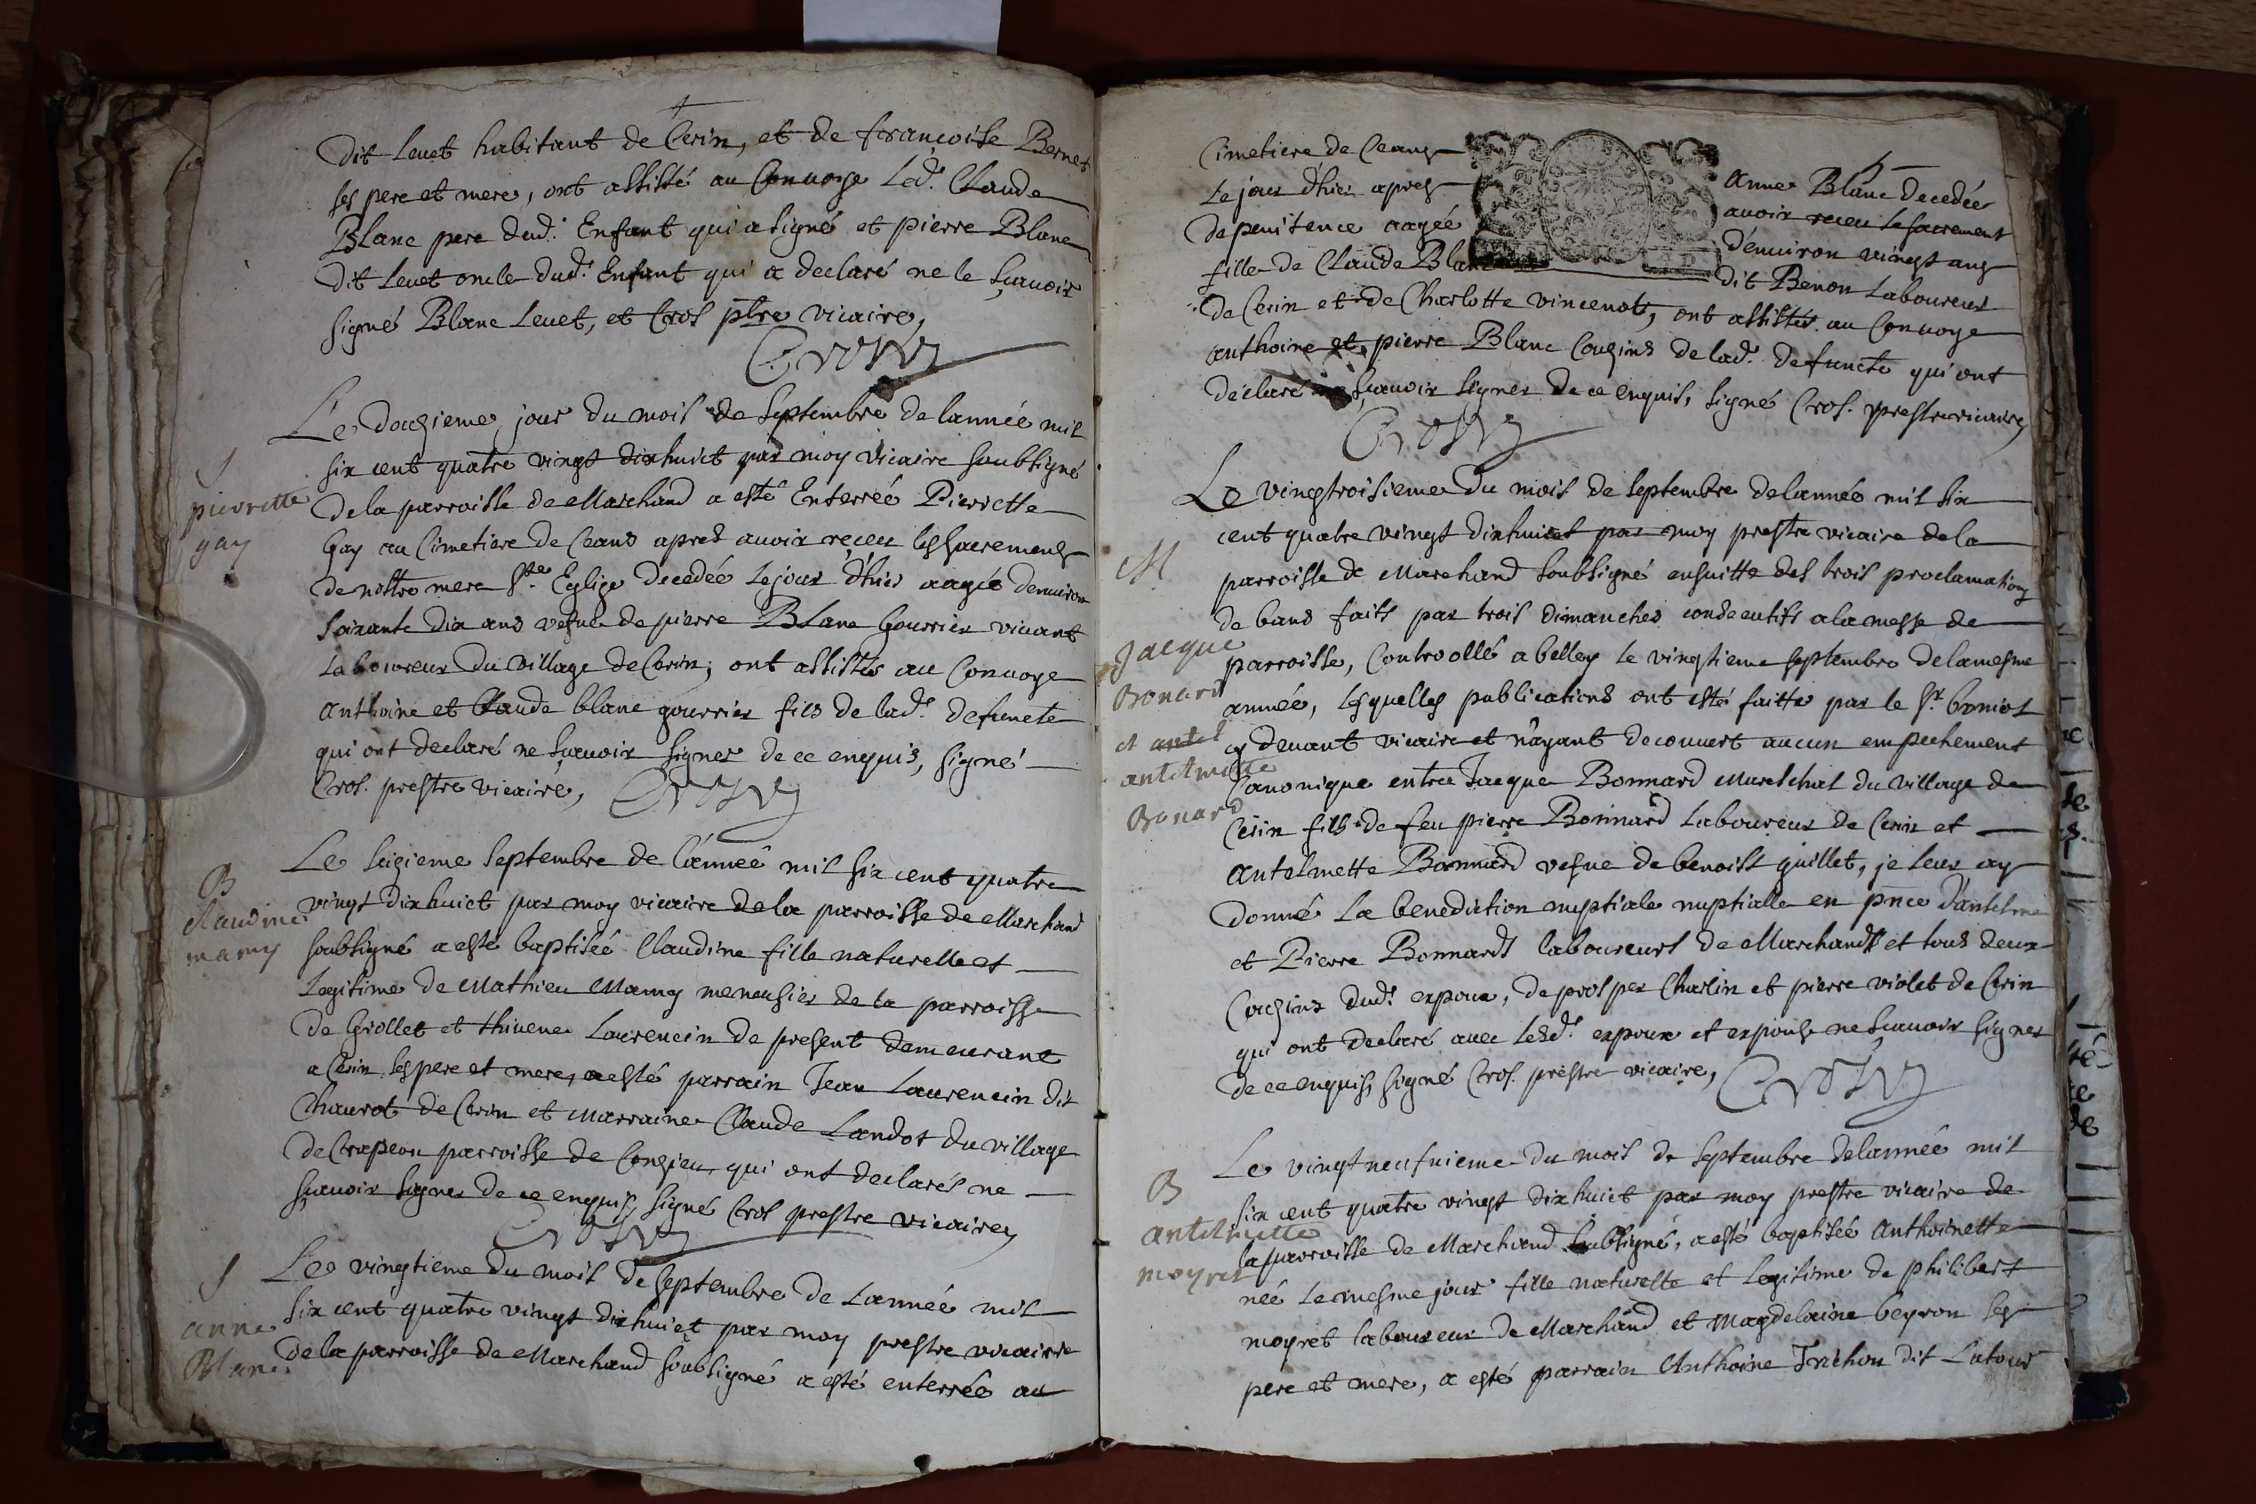 Dit Levet habitant de Cerin, et de francoise Bernet
ses pere et mere, ont assisté au Convoye Led.t Claude
Blanc pere dud.t Enfant qui a signé et pierre Blanc
Dit Levet oncle dud.t Enfant qui a declaré ne le scavoir
signé Blanc Levet, et Cros ptre vicaire,
Cros
Le douzieme jour du mois de Septembre de lannée mil
six cent quatre vingt dixhuict par moy vicaire soubsigné
De la parroisse de Marchand a esté Enterrée Pierrette
Gay au Cimetiere de Ceans apres avoir reçeu les sacremens
de nostre mere S.te Eglize decedée le jour d'hier aagée denviron
soixante dix ans vefue de pierre Blanc Gourrier vivant
Laboureur du village de Cerin, ont assistés au Convoye
anthoine et Claude blanc gourrier fils de lad.e defuncte
qui ont declaré ne scavoir signer de ce enquis, signé
Cros prestre vicaire, Cros
Le seizieme Septembre de l'année mil six cent quatre
vingt dixhuict par moy vicaire de la parroisse de Marchand
soubsigné a esté baptisée Claudine fille naturelle et
Legitime de Mathieu Mamy menusier de la parroisse
de Grollet et thivene Laurencin de present demeurant
a Cerin ses pere et mere, a esté parrain Jean Laurencin dit
Chaurot de Cerin et Marraine Claude Landot du village
de Crapeou parroisse de Conzieu, qui ont declarés ne
scavoir signer de ce enquis, signé Cros prestre vicaire,
Cros
Le vingtieme du mois de Septembre de Lannée mil
six cent quatre vingt dixhuiet par moy prestre vicaire
de la parroisse de Marchand soubsigné a esté enterrée au
S
pierrette
gay
B
claudine
mamy
S
anne
Blanc
Cimetiere de Ceans anne Blanc decedée
Le jour d'hier apres avoir receu le sacrement
de penitence aagée d'environ vingt ans
fille de Claude Blanc dit Benon Laboureur
de Cerin et de Charlotte vincenot, ont assistés au Convoye
anthoine et pierre Blanc Cousins de lad.e defuncte qui ont
declaré scavoir signer de ce enquis, signé Cros prestre vicaire,
Cros
Le vingtroisieme du mois de septembre de lannée mil six
cent quatre vingt dixhuict par moy prestre vicaire de la
parroisse de Marchand soubsigné ensuitte des trois proclamations
de bans faits par trois dimanches consecutifs a la messe de
parroisse, Controollé a belley le vingtieme septembre de la mesme
année, lesquelles publications ont esté faitte par le S.r
cy devant vicaire et n'ayant decouvert aucun empechement
Canonique entre Jacque Bonnard Mareschal du village de
Cerin fils de feu pierre Bonnard Laboureur de Cerin et
antelmette Bonnard vefue de benoist guillet, je leur ay
donné La benediction nuptiale nuptialle en pnce d'antelme
et Pierre Bonnard laboureurs de Marchand et tous deux
Cousins dud.t expoux, de prosper Charlin et pierre violet de Cerin
qui ont declaré avec lesd.t expoux et expouse ne scavoir signer
de ce enquis, signé Cros prestre vicaire, Cros
Le vingt neufvieme du mois de Septembre de lannée mil
six cent quatre vingt dixhuict par moy prestre vicaire de
la parroisse de Marchand soubsigné, a esté baptisée Anthoinette
née le mesme jour fille naturelle et legitime de philibert
moyret laboureur de Marchand et Magdelaine beyron ses
pere et mere, a esté parrain Anthoine Trichon dit Latour
M
Jacque
Bonard
et antel
antelmette
Bonard
B
antelmette
moyret